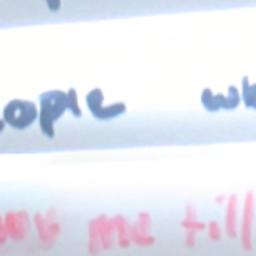 ople wh
me till